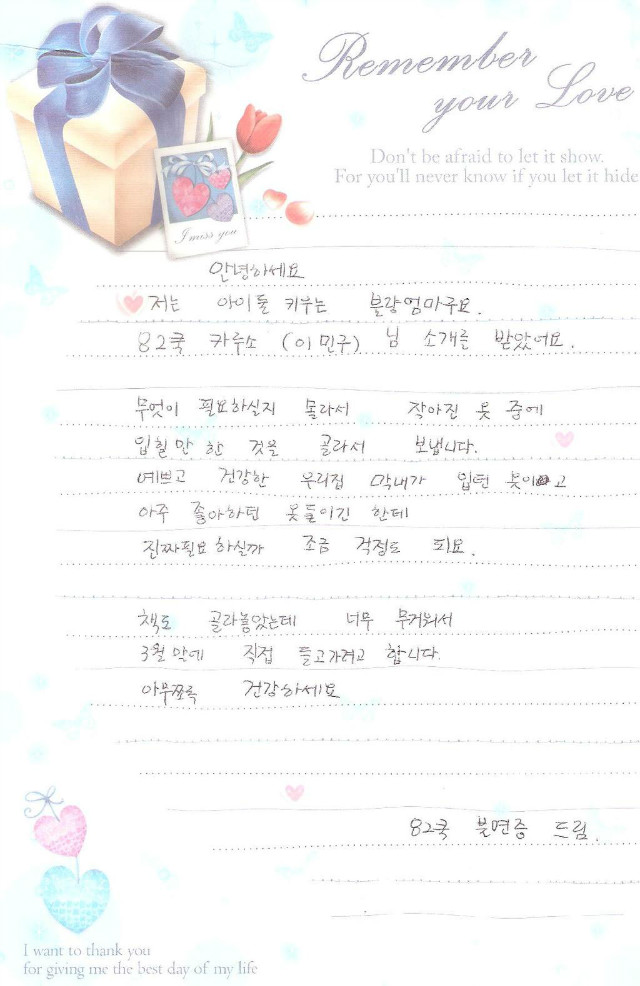 Remember
your Love
Don't be afraid to let it show.
For you'll never know if you let it hide
I miss you
안녕하세요
저는 아이둘 키우는 불량엄마구요.
82쿡 카루소 (이민구) 님 소개를 받았어요.
무엇이 필요하실지 몰라서 작아진 옷 중에
입힐만 한 것을 골라서 보냅니다.
예쁘고 건강한 우리집 막내가 입던 옷이고
아주 좋아하던 옷들이긴 한데
진짜필요하실까 조금 걱정도 되요.
책도 골라놓았는데 너무 무거워서
3월 말에 직접 들고가려고 합니다.
아무쪼록 건강하세요
82쿡 불면증 드림.
I want to thank you
for giving me the best day of my life